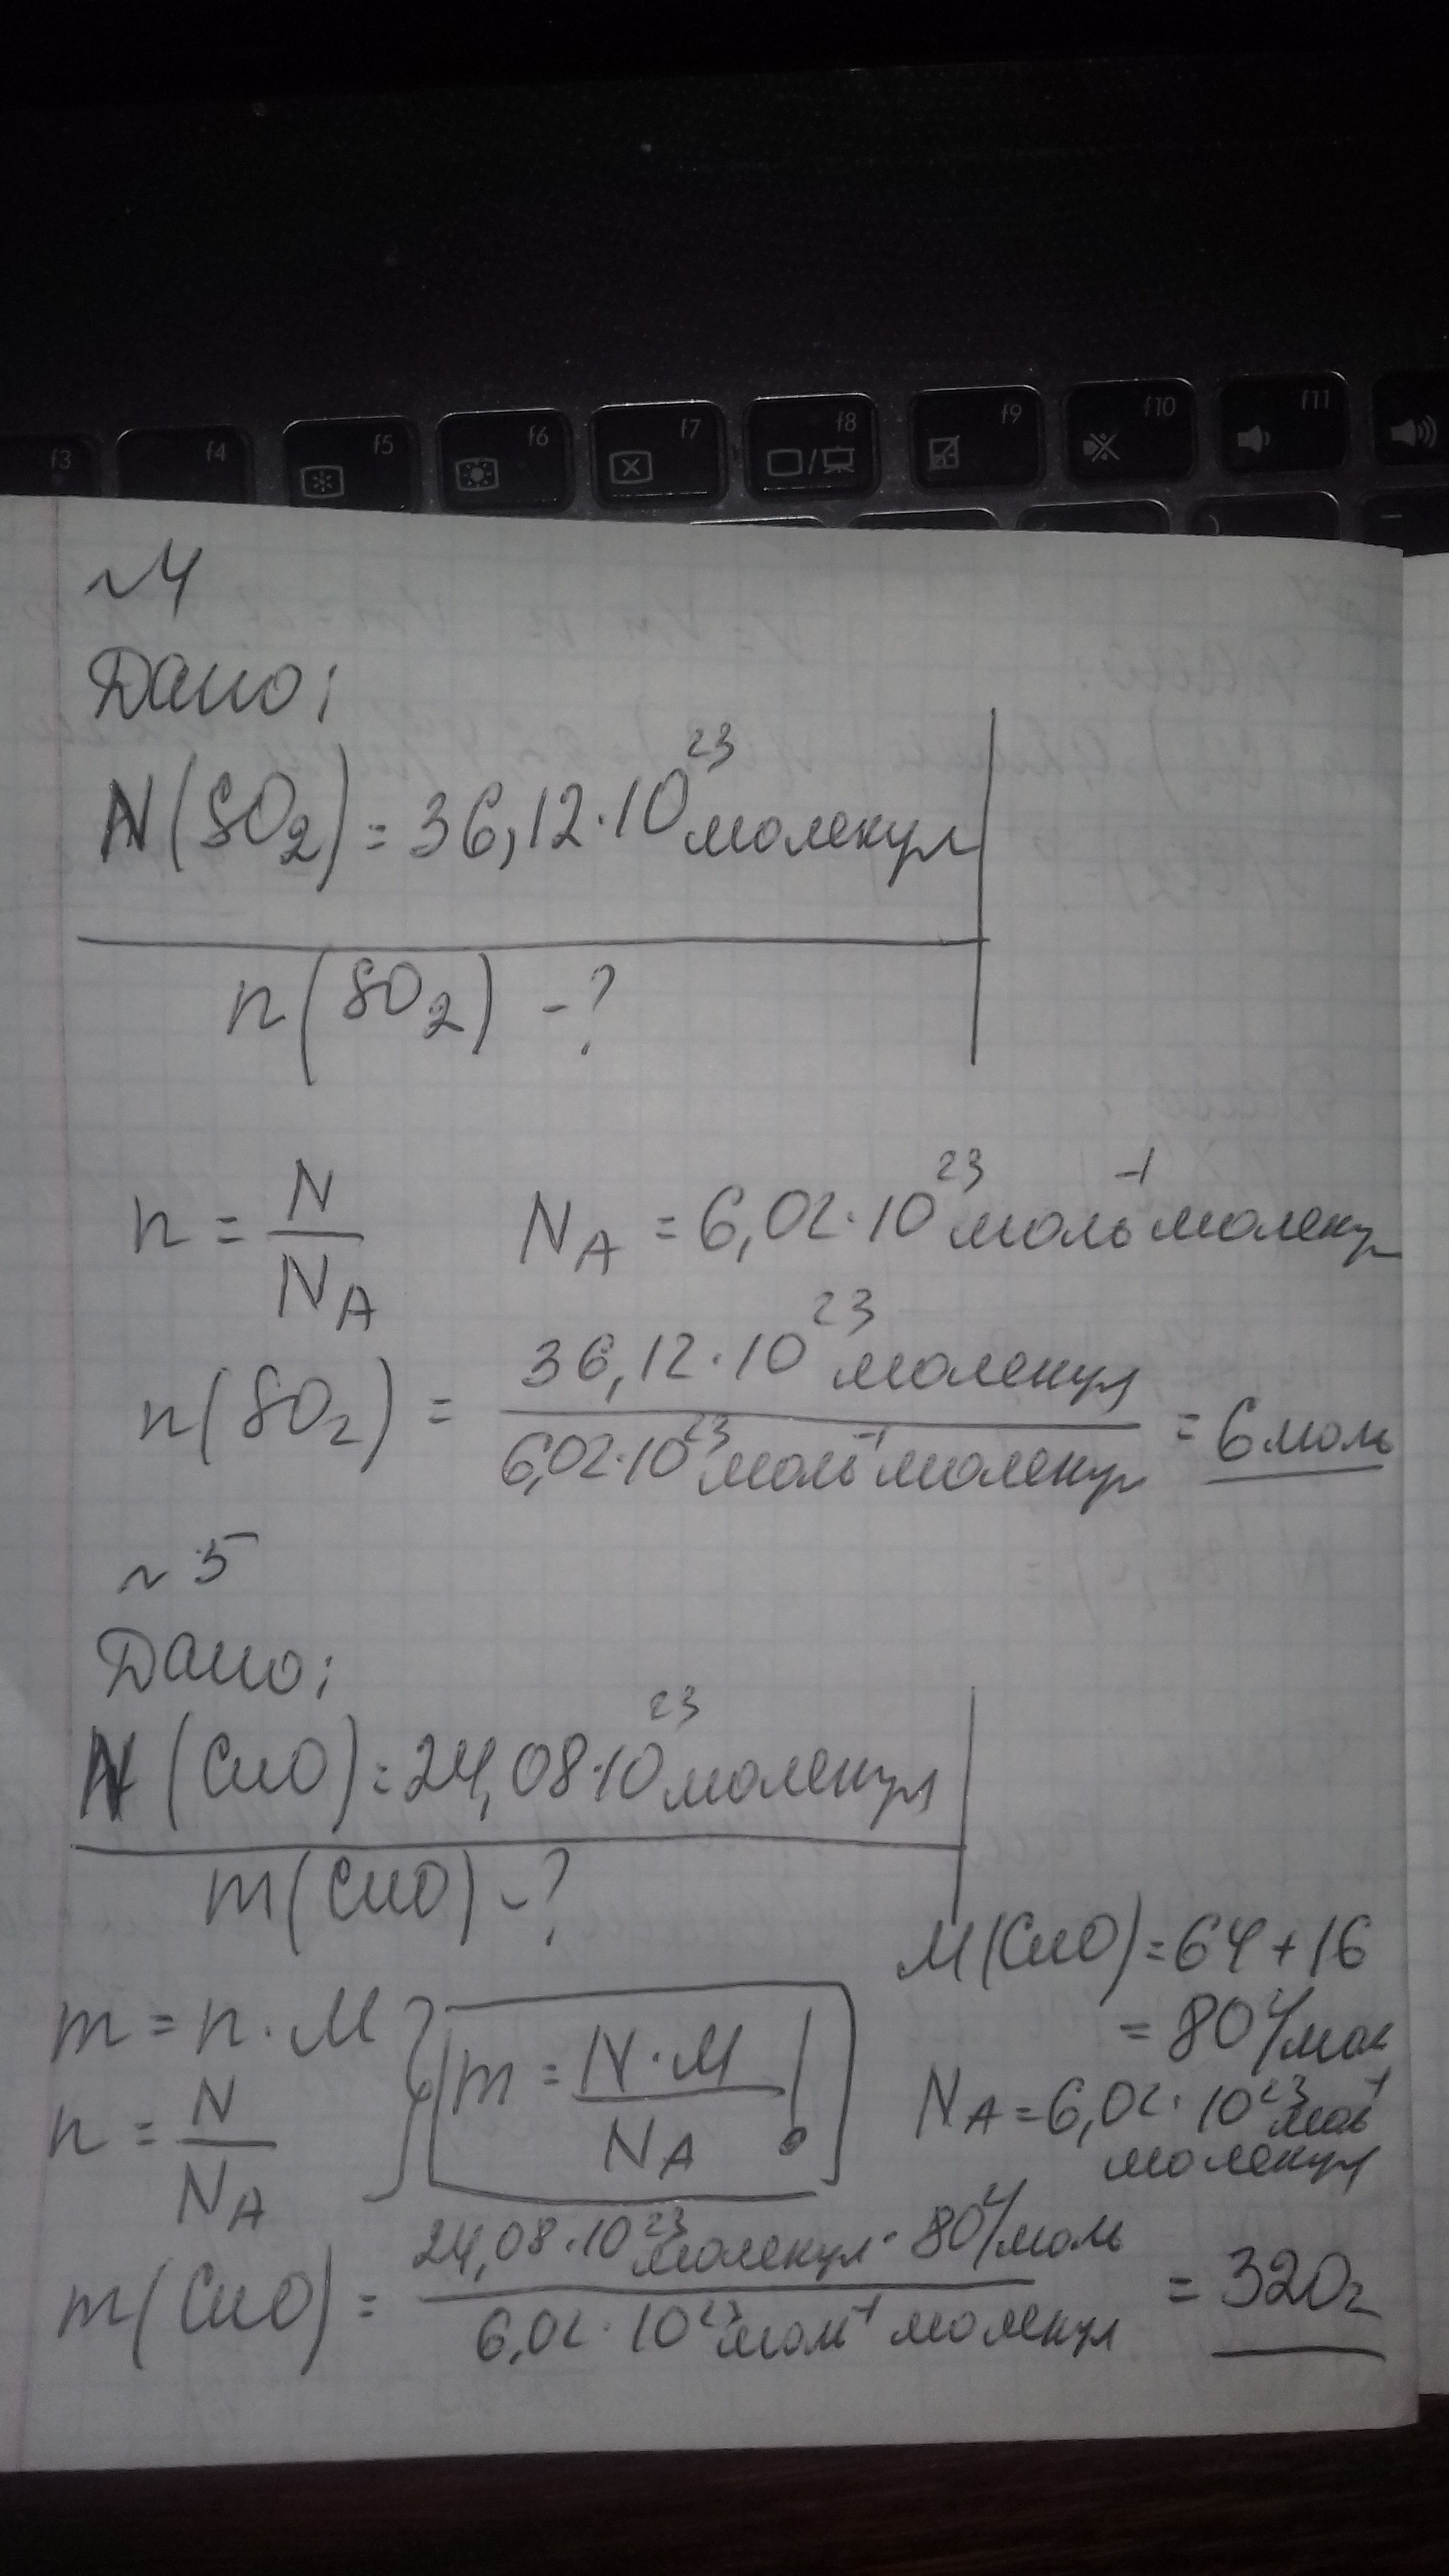 f3 f4 f5 f6 f7 f8 f9 f10 f11
~4
Дано:
N(SO₂) = 36,12·10²³ молекул
n(SO₂) - ?
n = N/N_A    N_A = 6,02·10²³ моль⁻¹ молекул
n(SO₂) = 36,12·10²³ молекул / 6,02·10²³ моль⁻¹ молекул = 6 моль
~5
Дано:
N(CuO) = 24,08·10²³ молекул
m(CuO) - ?
M(CuO) = 64+16
= 80 г/моль
m = n·M
n = N/N_A
m = N·M/N_A !
N_A = 6,02·10²³ моль⁻¹
молекул
m(CuO) = 24,08·10²³ молекул · 80 г/моль / 6,02·10²³ моль⁻¹ молекул = 320г